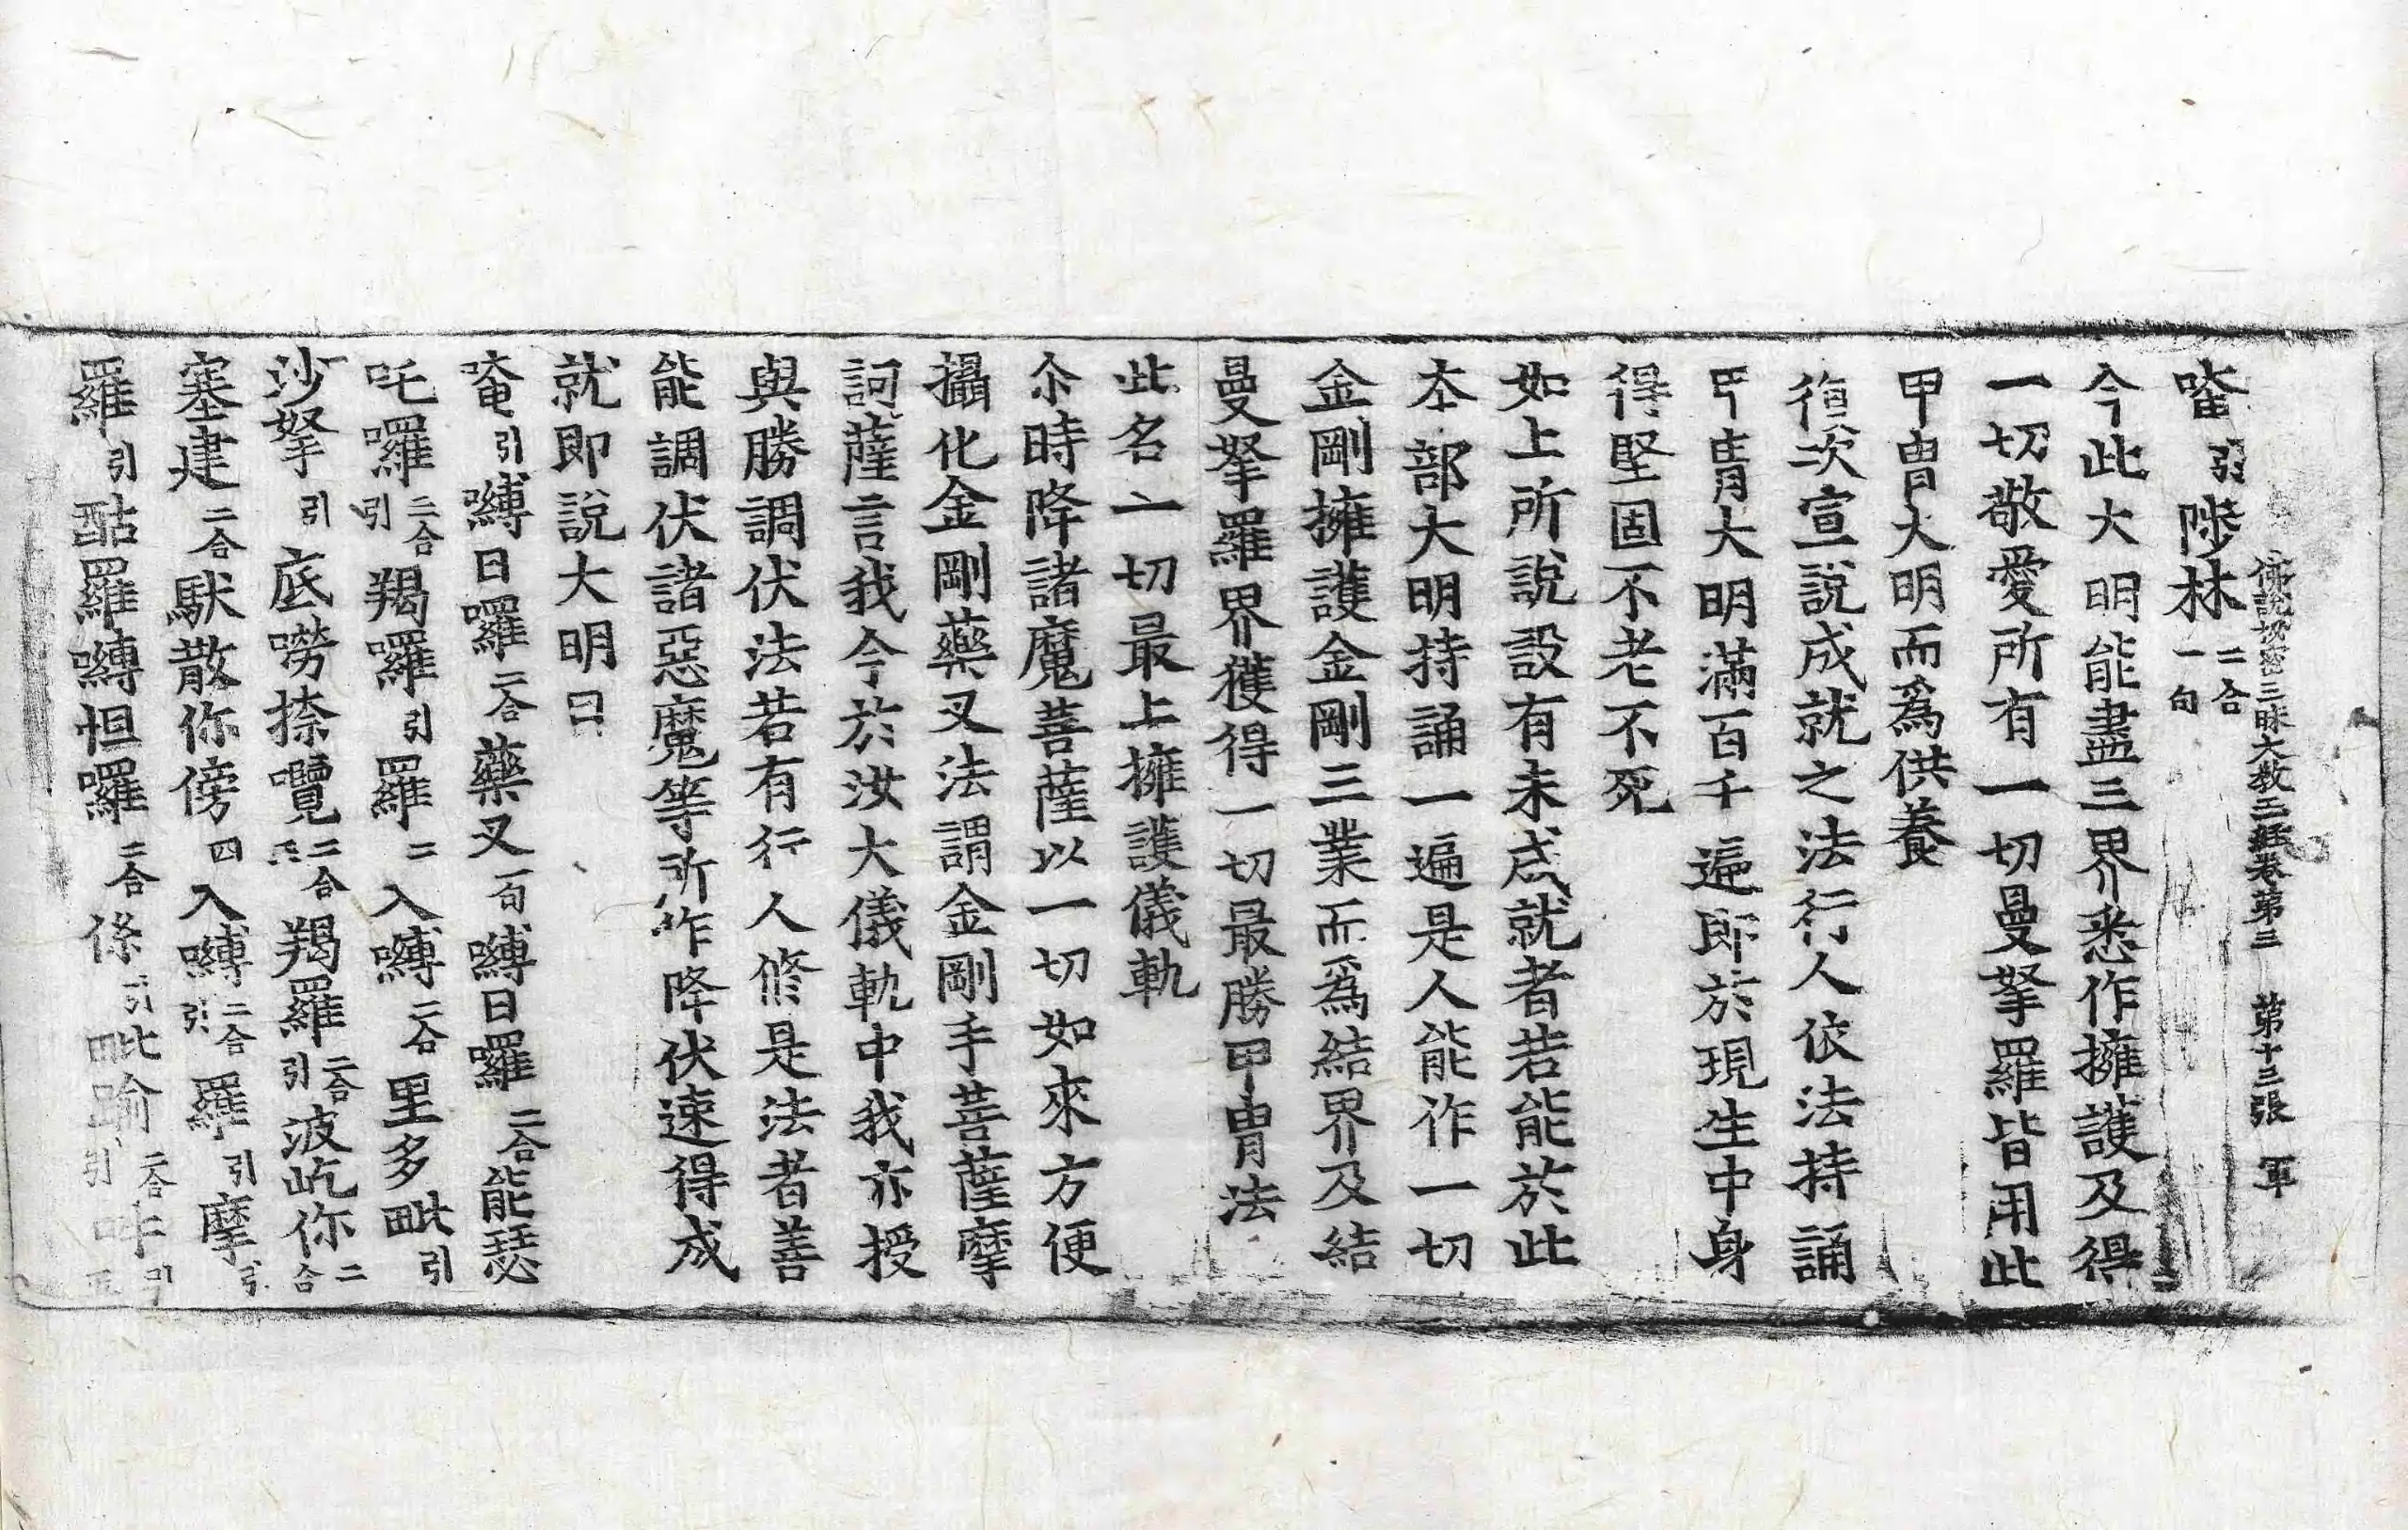 佛說秘密三昧大教王經卷第三 第十三張 軍
喀引隊林二合一句
今此大明能盡三界悉作擁護及得
一切敬愛所有一切曼拏羅皆用此
甲冑大明而爲供養
復次宣說成就之法行人依法持誦
甲冑大明滿百千遍即於現生中身
得堅固不老不死
如上所說設有未成就者若能於此
本部大明持誦一遍是人能作一切
金剛擁護金剛三業而爲結界及結
曼拏羅界獲得一切最勝甲冑法
此名一切最上擁護儀軌
尒時降諸魔菩薩以一切如來方便
攝化金剛藥叉法謂金剛手菩薩摩
訶薩言我今於汝大儀軌中我亦授
與勝調伏法若有行人修是法者善
能調伏諸惡魔等所作降伏速得成
就即說大明曰
唵引嚩日囉二合藥叉一句嚩日囉二合能瑟
吒囉二合引羯羅引羅二入嚩二合里多毗引
沙拏引底嘮捺囕二合三羯羅二合引波屹你二合
塞建二合馱散你傍四入嚩二合引羅引摩引
羅引酤羅嚩怛囉二合條引毗喻二合